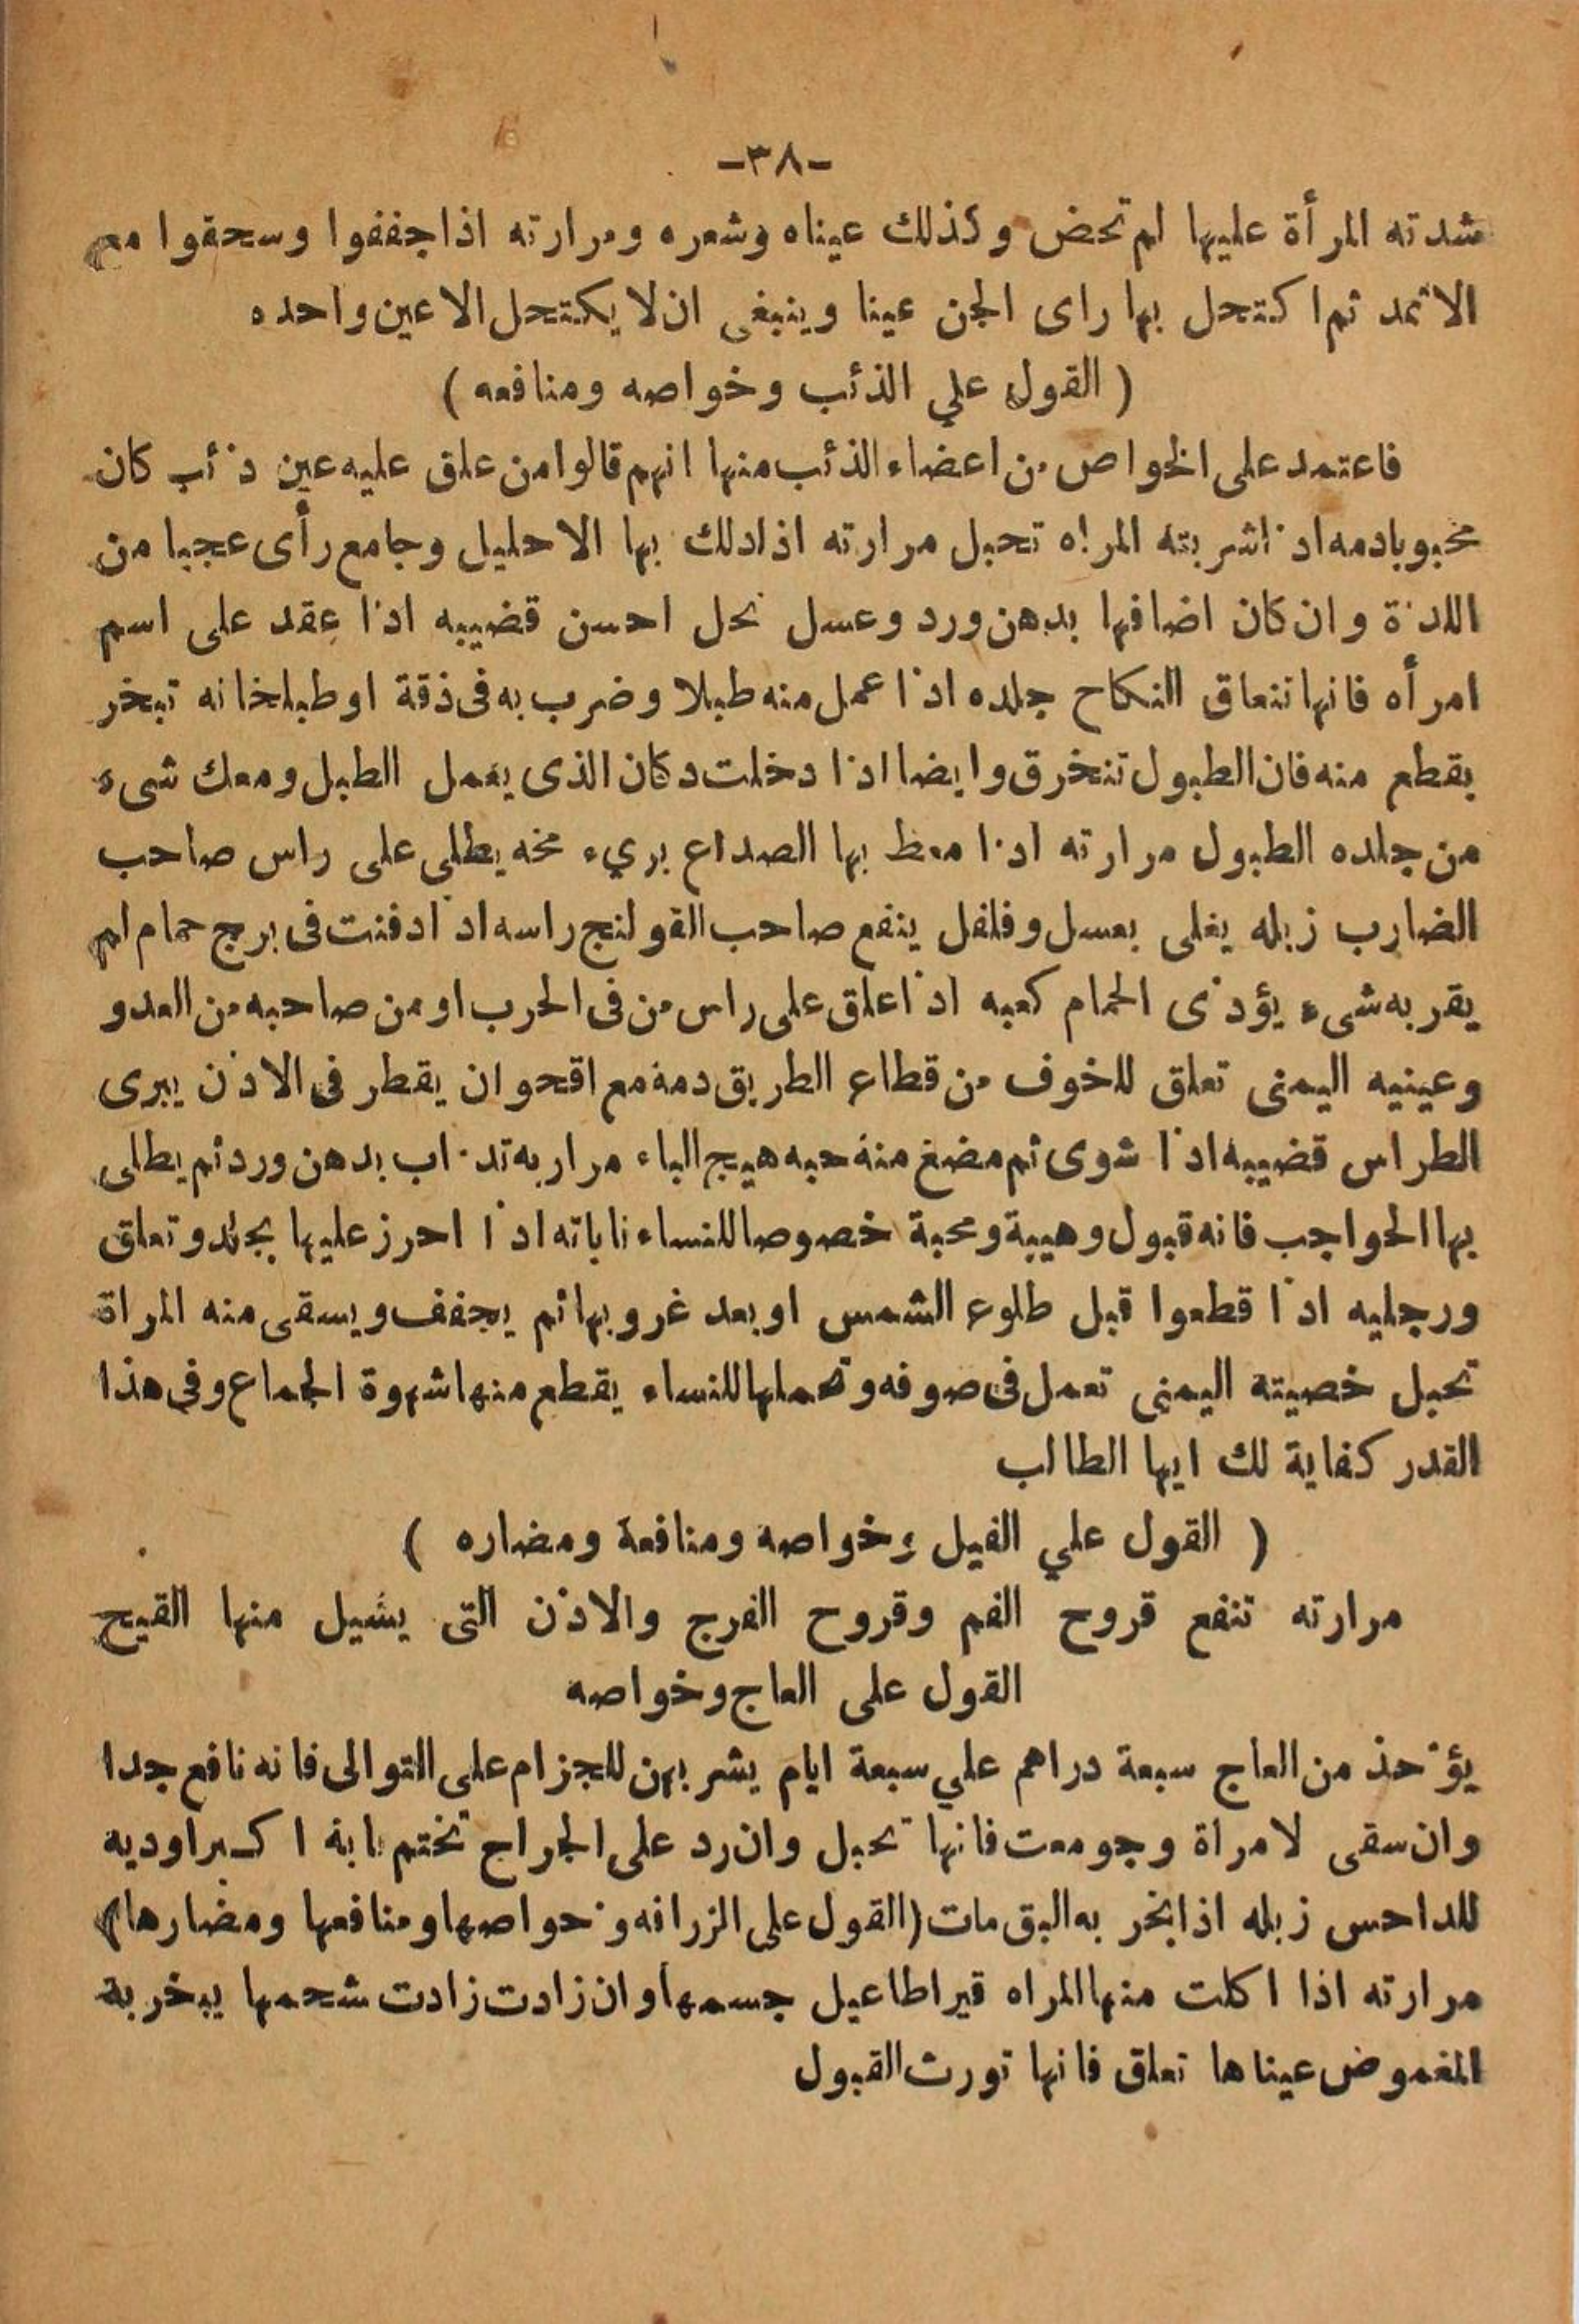 -٣٨-
شدته المرأة عليها لم تحض وكذلك عيناه وشعره ومرارته اذا جففوا وسحقوا مع
الاثمد ثم اكتحل بها راى الجن عينا وينبغى ان لا يكتحل الا عين واحده
( القول علي الذئب وخواصه ومنافعه )
فاعتمد على الخواص من اعضاء الذئب منها انهم قالوا من علق عليه عين ذئب كان
محبوبا دمه اذا شربته المراه تحبل مرارته اذا دلك بها الاحليل وجامع رأى عجبا من
اللذة وان كان اضافها بدهن ورد وعسل نحل احسن قضيبه اذا عقد على اسم
امرأه فانها تنعاق النكاح جلده اذا عمل منه طبلا وضرب به فى ذقة او طبلخانه تبخر
بقطع منه فان الطبول تنخرق وايضا اذا دخلت دكان الذى يعمل الطبل ومعك شىء
من جلده الطبول مرارته اذا معط بها الصداع بريء مخه يطلى على راس صاحب
الضارب زبله يغلى بعسل وفلفل ينفع صاحب القولنج راسه اذا دفنت فى برج حمام لم
يقربه شىء يؤذى الحمام كعبه اذا علق على راس من فى الحرب او من صاحبه من العدو
وعينيه اليمنى تعلق للخوف من قطاع الطريق دمه مع اقحوان يقطر فى الاذن يبرى
الطراس قضيبه اذا شوى ثم مضغ منه حبه هيج الباء مراربه تذاب بدهن ورد ثم يطلى
بها الحواجب فانه قبول وهيبة ومحبة خصوصا للنساء ناباته اذا احرز عليها بجلد وتعلق
ورجليه اذا قطعوا قبل طلوع الشمس او بعد غروبها ثم يجفف ويسقى منه المراة
تحبل خصيته اليمنى تعمل فى صوفه وتحملها للنساء يقطع منها شهوة الجماع وفى هذا
القدر كفاية لك ايها الطالب
( القول علي الفيل وخواصه ومنافعة ومضاره )
مرارته تنفع قروح الفم وقروح الفرج والاذن التى يشيل منها القيح
القول على العاج وخواصه
يؤخذ من العاج سبعة دراهم علي سبعة ايام يشربهن للجزام على التوالى فانه نافع جدا
وان سقى لامراة وجومعت فانها تحبل وان رد على الجراح تختم نابة اكبر اوديه
للداحس زبله اذا بخر به البق مات (القول على الزرافه وخواصها ومنافعها ومضارها)
مرارته اذا اكلت منها المراه قيراطا عيل جسمها وان زادت زادت شحمها يبخر بة
المغموض عيناها تعلق فانها تورث القبول